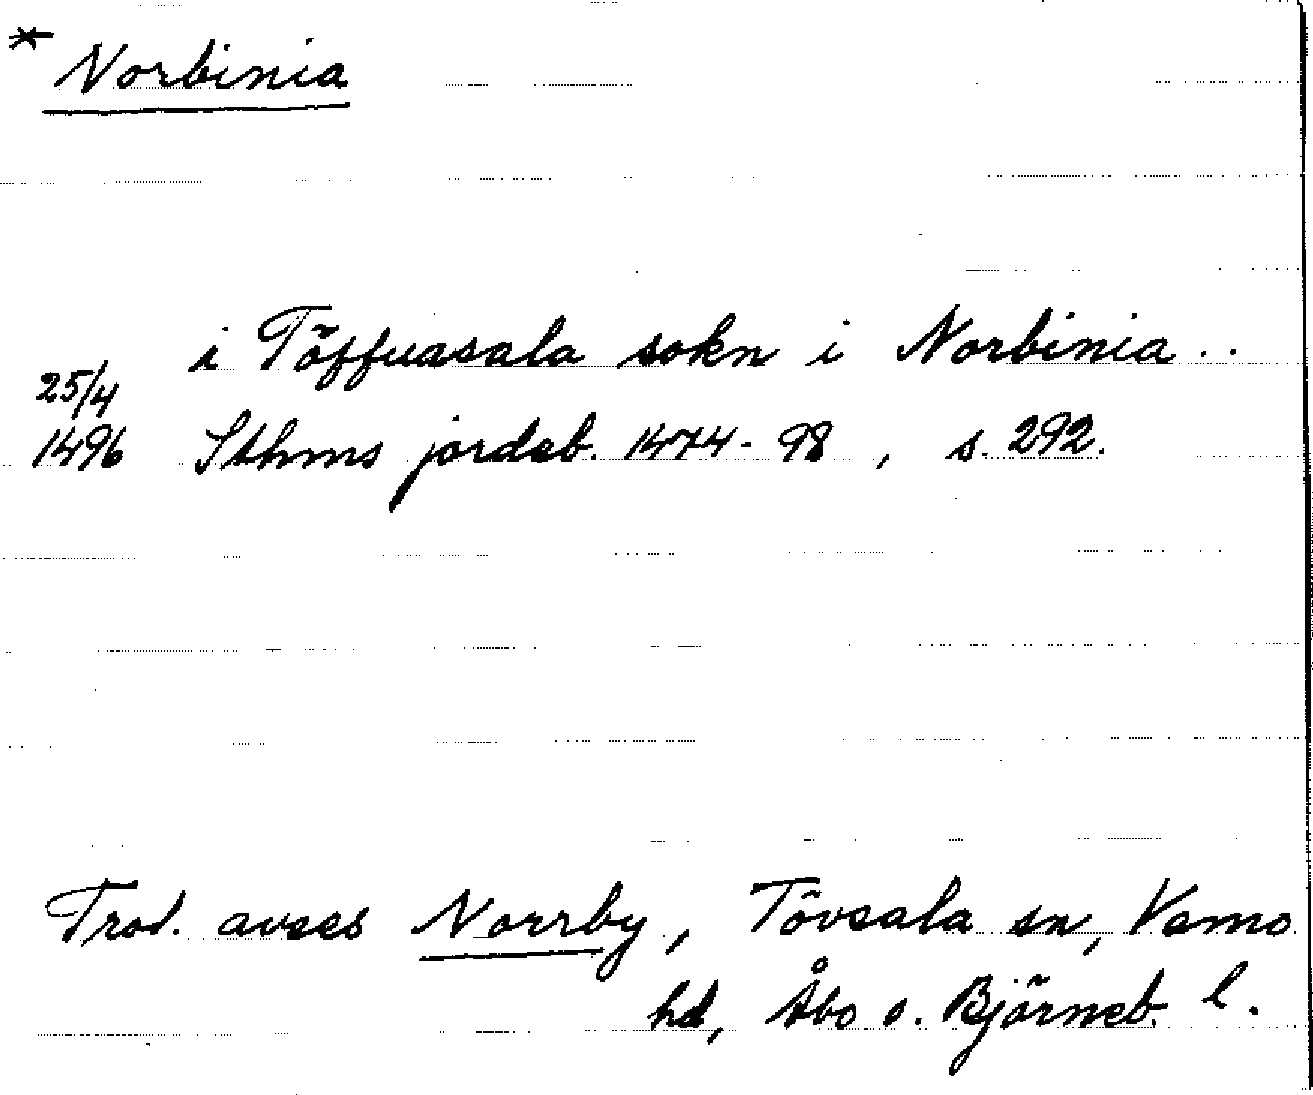 * Norbinia
i Töffuasala sokn i Norbinia ..
25/4
1496 Sthms jordeb. 1474-98, s. 292.
Trol. avses Norrby, Tövsala sn, Vemo
hd, Åbo o. Björneb. l.